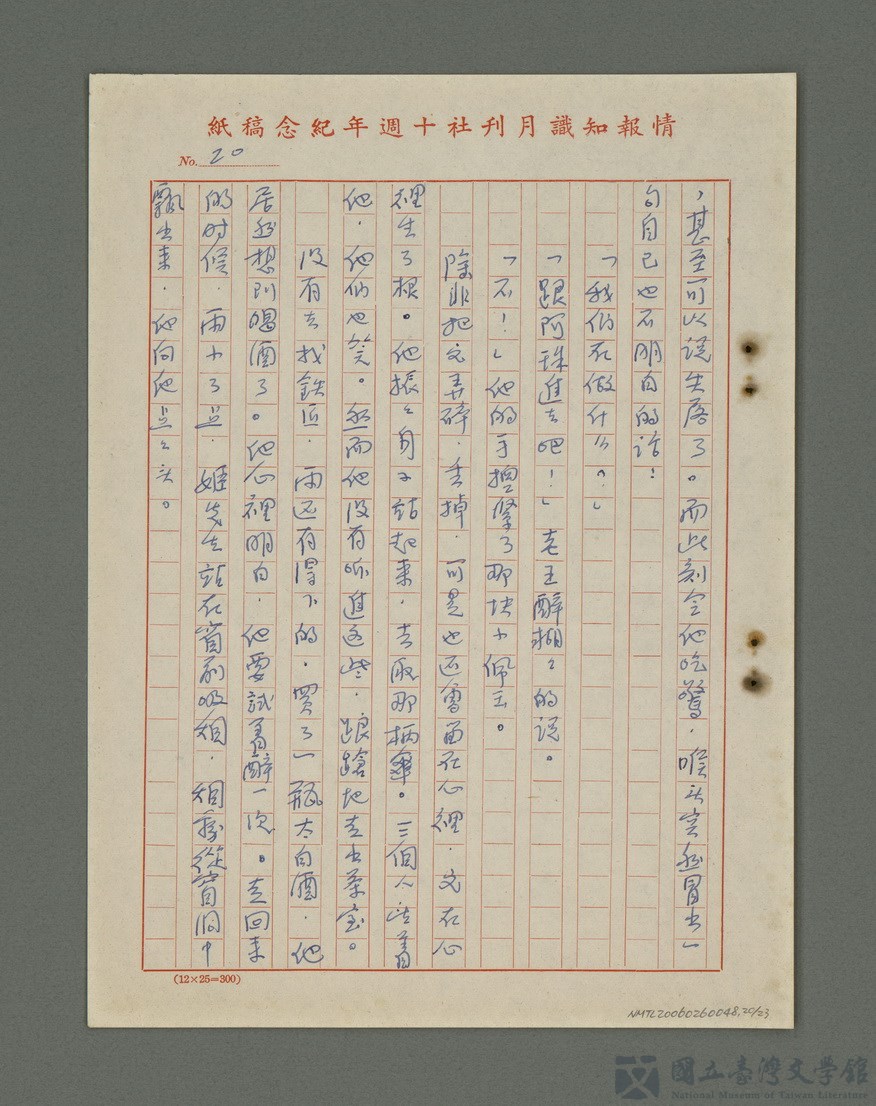 情報知識月刊社十週年紀念稿紙
No. 20
，甚至可以说失落了。而此刻令他吃驚，喉头突然冒出一
句自己也不明白的话！
「我们在做什么？」
「跟阿珠進去吧！」老王醉糊々的说。
「不！」他的手握緊了那块小佩玉。
除非把它弄碎，丢掉，可是也还會留在心裡，它在心
裡生了根。他振々身子站起来，去取那柄傘。三個人望著
他，他们也笑。然而他没有听進这些，踉蹌地走出茶室。
没有去找鉄匠，雨还有得下的，買了一瓶太白酒，他
居然想到喝酒了。他心裡明白，他要試着醉一次。走回来
的时候，雨小了些，姬先生站在窗前吸烟，烟霧從窗洞中
飄出来，他向他点々头。
(12×25=300)
NMTL20060260048.20/23
國立臺灣文學館
National Museum of Taiwan Literature